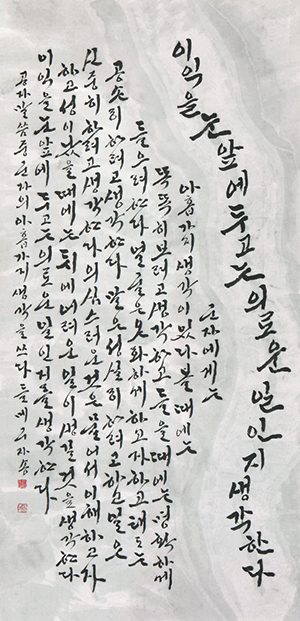 이익을 눈앞에 두고는 의로운 일인지 생각한다
군자에게는
아홉가지 생각이 있다 볼때에는
똑똑히 보려고 생각하고 들을때에는 명확하게
들으려 한다 얼굴은 온화하게 하고자 하고 태도는
공손히 하려고 생각한다 말은 성실히 하려고 하고 일은
신중히 하려고 생각한다 의심스러운 것은 물어서 이해하고자
하고 성이 났을 때에는 뒤에 어려운 일이 생길 것을 생각한다
이익을 눈앞에 두고는 의로운 일인가를 생각한다
공자 말씀 중 군자의 아홉가지 생각을 쓰다